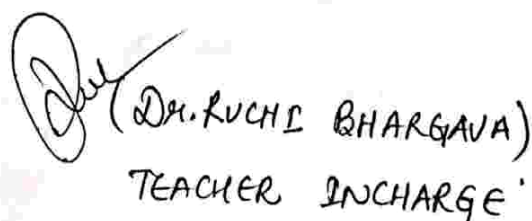 (Dr. RUCHI BHARGAVA)
TEACHER INCHARGE